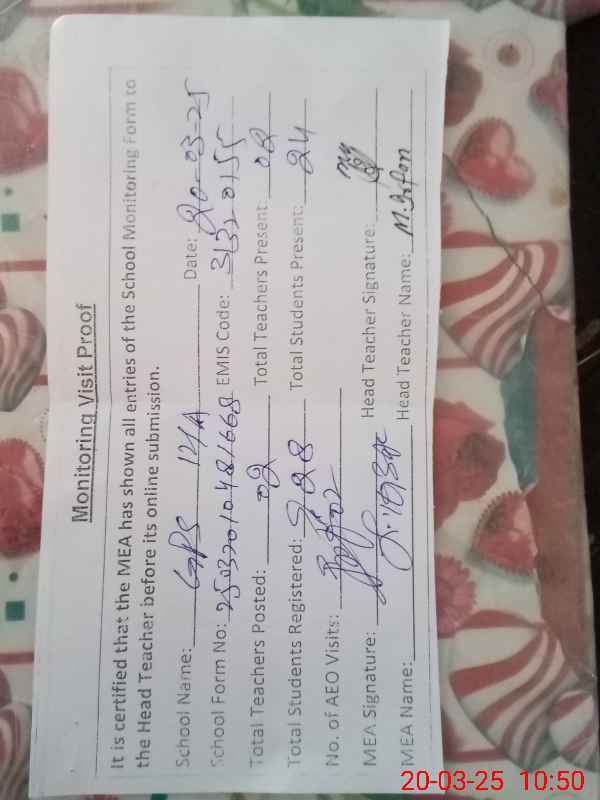 Monitoring Visit Proof
It is certified that the MEA has shown all entries of the School Monitoring Form to
the Head Teacher before its online submission.
School Name: GPS 121/A Date: 20-03-25
School Form No: 2503201048/668 EMIS Code: 31320155
Total Teachers Posted: 02 Total Teachers Present: 02
Total Students Registered: 28 Total Students Present: 24
No. of AEO Visits: 02
MEA Signature: Head Teacher Signature:
MEA Name: Head Teacher Name: M. Irfan
20-03-25 10:50